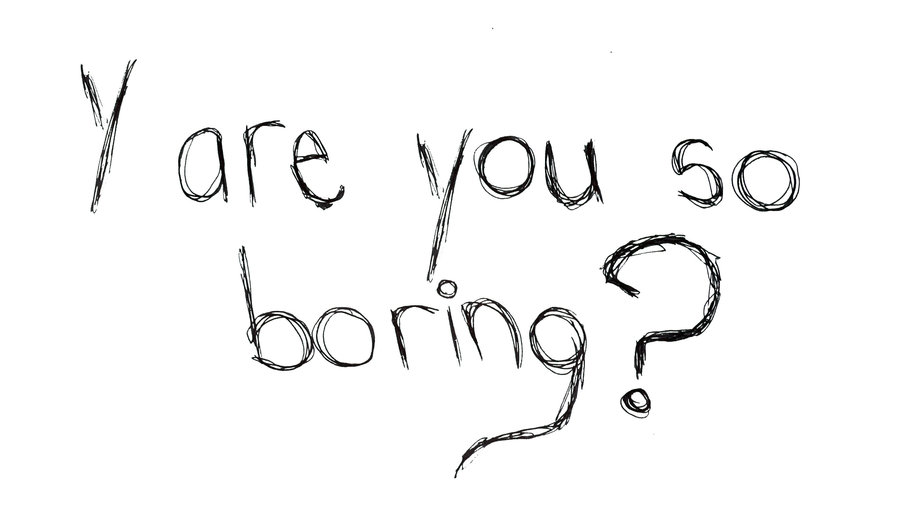 Y are you so
boring?